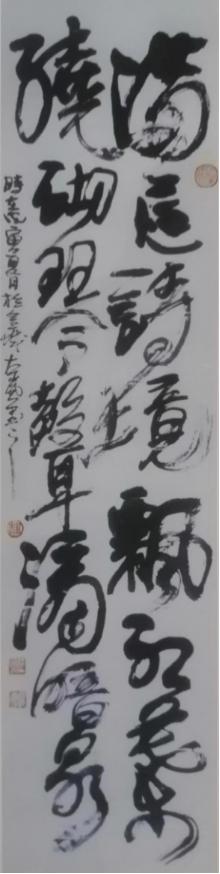 滿庭詩境飄紅葉
繞砌琴聲滴暗泉
時在庚寅夏月於金城